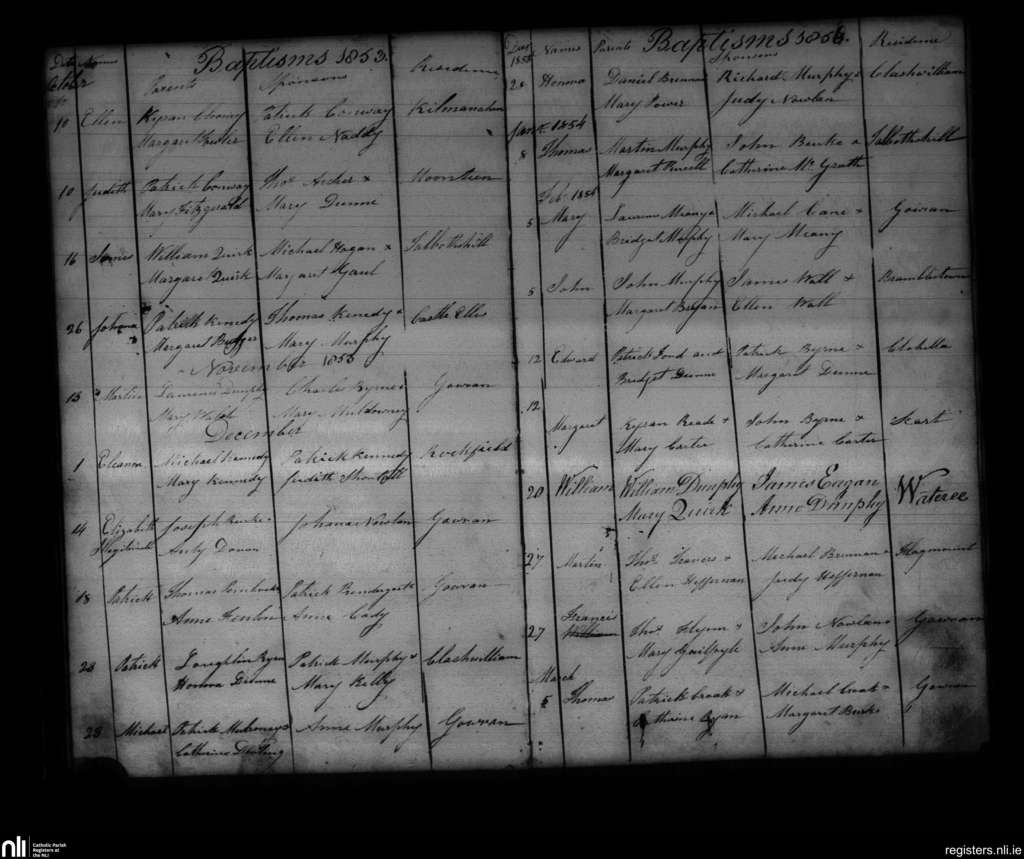 Baptisms 1853.
Date Names Parents Sponsors Residence
October
10 Ellen Kyran Patrick Conway Kilmanahan
Margaret Ellen Naddy
10 Judith Patrick Conway Thos Archer & Moonteen
Mary Fitzgerald Mary Dunne
16 James William Quirk Michael Hogan & Talbotshill
Margaret Quirk Margaret Gaul
26 Johana Patrick Kenedy Thomas Kenedy & Castle Ellis
Margaret Mary Murphy
November 1853
13 Martin Laurence Dunphy Charles Byrne Gowran
Mary Walsh Mary Muldowney
December
1 Eleanor Michael Kennedy Patrick Kennedy Rochfield
Mary Kennedy Judith
14 Elizabeth Joseph Burke Johanna Gowran
Illegitimate Judy
18 Patrick Thomas Patrick Prendergast Gowran
Anne Anne Cody
28 Patrick Loughlin Ryan Patrick Murphy & Clashwilliam
Honora Dunne Mary Kelly
28 Michael Patrick Anne Murphy Gowran
Catherine
Baptisms 1853.
Date Names Parents Sponsors Residence
1853
28 Honora Daniel Brennan Richard Murphy & Clashwilliam
Mary Power Judy Nowlan
Jany 1854
8 Thomas Martin Murphy John Burke & Talbotshill
Margaret Purcell Catherine Mc Grath
Feb. 1854
5 Mary Laurence Meany & Michael Cane & Gowran
Bridget Murphy Mary Meany
5 John John Murphy James Wall & Bramblestown
Margaret Bryan Ellen Wall
12 Edward Patrick Bond and Patrick Byrne & Clohella
Bridget Dunne Margaret Dunne
12
Margaret Kyran Reade & John Byrne & Scart
Mary Carter Catherine Carter
20 William William Dunphy James Eagan Wateree
Mary Quirk Anne Dunphy
27 Martin Thos Travers & Michael Brennan & Flagmount
Ellen Heffernan Judy Heffernan
Francis
27 William Thos Flynn & John Nowland Gowran
Mary Anne Murphy
March
5 Thomas Patrick Croak & Michael Croak & Gowran
Cathaine Ryan Margaret Burke
nli
Catholic Parish
Registers at
the NLI
registers.nli.ie